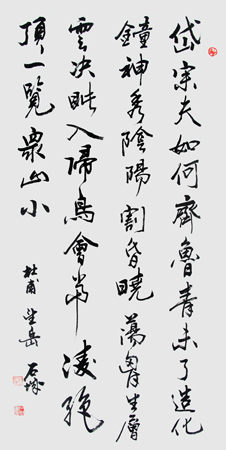 岱宗夫如何齊魯青未了造化
鐘神秀陰陽割昏曉蕩胷生層
雲決眦入歸鳥會當凌絶
頂一覽衆山小
杜甫望岳